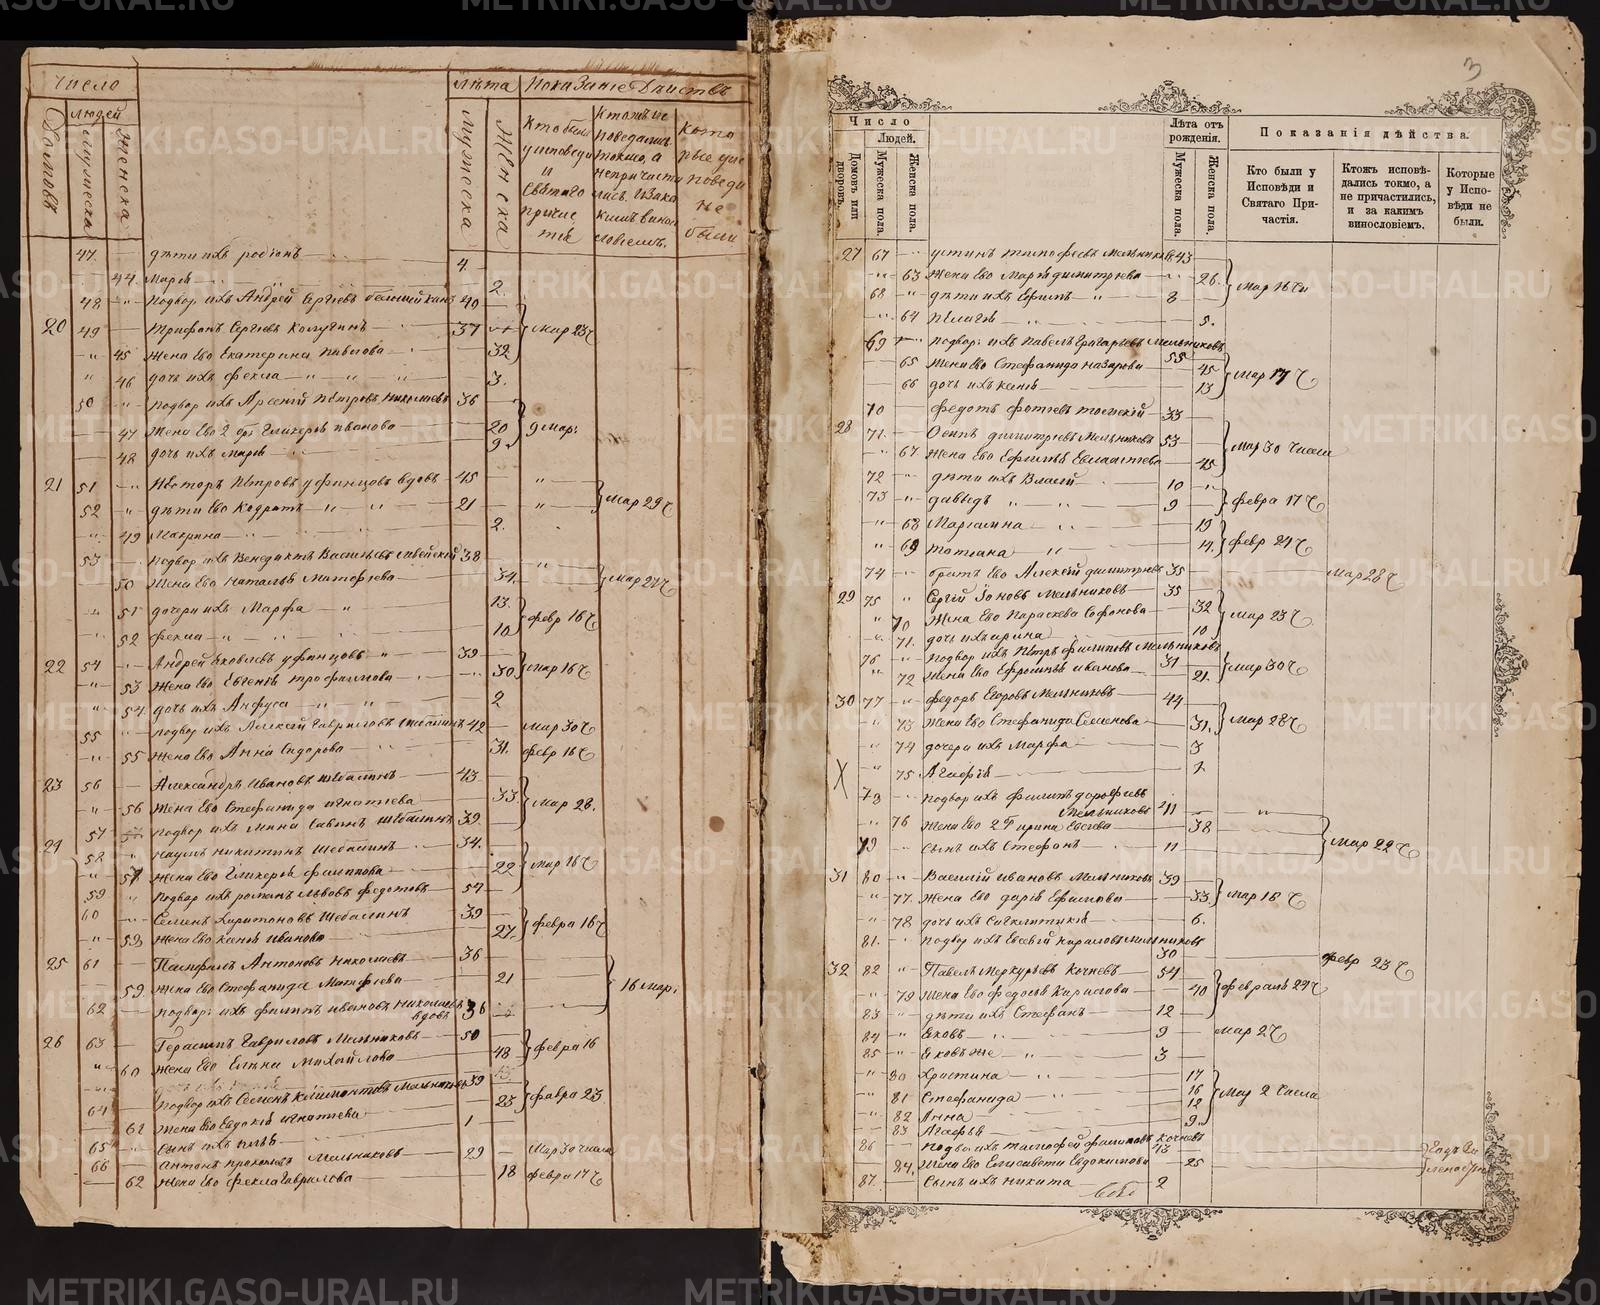 Число
людей
Домовъ
мужеска
Женска
лѣта
мужеска
Женска
Показание Дѣиствъ
Кто были у исповеди и Святаго причастія
которые у исповеди не были
47 дѣти ихъ родіонъ 4.
44 Марія 2.
48 Подвор ихъ Андрей Сергіевъ 40
20 49 Трифонъ Сергіевъ Калугинъ 37 Мар 23 ч
45 Жена Ево Екатерина Павлова 32
46 дочь ихъ фекла 3.
50 Подвор ихъ Арсеній Петровъ Николаевъ 36
47 Жена Ево 2 бр Гликерія иванова 20 9 мар:
48 дочь ихъ Марія 9
21 51 Несторъ Петровъ уфинцовъ вдовъ 45
52 дѣти Ево Кодратъ 21 Мар 29 ч
49 Маврина 2.
53 Подвор ихъ Венедиктъ Васильевъ 38
50 Жена Ево Наталья Матфіева 34. Мар 22 ч
51 дочери ихъ Марфа 13.
52 фекла 10 февр 16 ч
22 54 Андрей Яковлевъ уфинцовъ 39
53 Жена Ево Евгенія трофимова 30 мар 16 ч
54 дочь ихъ Анфуса 2
55 подвор ихъ Алексѣй Гавриловъ Шабалинъ 42 Мар 30 ч
55 Жена Ево Анна Сидорова 31. февр 16 ч
23 56 Александръ Ивановъ Шабалинъ 43
56 Жена Ево Стефанида игнатіева 33 Мар 28.
57 подвор ихъ Мина Савинъ Шабалинъ 39
24 58 Наумъ никитинъ Шабалинъ 34.
57 Жена Ево Гликерія филиппова 22 Мар 16 ч
59 Подвор ихъ романъ Львовъ федотовъ 57
60 Семенъ Харитоновъ Шабалинъ 39
58 Жена Ево ксенія иванова 27. февра 16 ч
25 61 Памфилъ Антоновъ Николаевъ 36
59 Жена Ево Стефанида Матфіева 21 16 мар:
62 подвор: ихъ филипъ ивановъ Николаевъ вдовъ 36
26 63 Герасимъ Гавриловъ Мельниковъ 50
60 Жена Ево Елена Михайлова 48 февра 16
64 Подвор ихъ Семенъ климонтовъ Мельниковъ 39
61 Жена Ево Евдокія игнатіева 23 февра 23
65 Сынъ ихъ 1
66 антонъ прокопьевъ Мельниковъ 29 Мар 30 числа
62 Жена Ево фекла Гаврилова 18 февра 17 ч
3
Число
Людей.
Домовъ или дворовъ.
Мужеска пола.
Женска пола.
Лѣта отъ рожденія.
Мужеска пола.
Женска пола.
Показанія дѣйства.
Кто были у Исповѣди и Святаго Причастія.
Ктожъ исповѣдались токмо, а не причастились, и за какимъ винословіемъ.
Которые у Исповѣди не были.
27 67 устинъ тимофеевъ Мельниковъ 43
63 Жена Ево Марія димитріева 26. Мар 16 чи
68 дѣти ихъ Ефимъ 8
64 Пелагія 5.
69 подвор: ихъ Павелъ Григорьевъ Мельниковъ 55
65 Жена Ево Стефанида назарова 45 Мар 17 ч
66 дочь ихъ ксенія 13
70 федотъ фотіевъ томскій 33
28 71. Осипъ димитріевъ Мельниковъ 53 Мар 30 Числа
67 Жена Ево Ефимія Евлантіева 45
72 дѣти ихъ Власій 10
73 давидъ 9 февра 17 ч
68 Маріамна 19
69 татиана 14. февр 21 ч
74 братъ Ево Алексій димитріевъ 35 Мар 28 ч
29 75 Сергій Іоновъ Мельниковъ 35
70 Жена Ево Параскева Софонова 32 Мар 23 ч
71. дочь ихъ ирина 10
76 Подвор ихъ Петръ филиповъ Мельниковъ 31
72 Жена Ево Ефросинія иванова 21. Мар 30 ч
30 77 федоръ Егоровъ Мельниковъ 44
73 Жена Ево Стефанида Семенова 31. Мар 28 ч
74 дочери ихъ Марфа 3
75 Агафія
78 Подвор ихъ филипъ дорофеевъ Мельниковъ 41
76 Жена Ево 2 бр ирина Евсеева 38
79 Сынъ ихъ Стефанъ 11 Мар 22 ч
31 80 Василій ивановъ Мельниковъ 39
77. Жена Ево дарія Ефимова 33 Мар 18 ч
78 дочь ихъ Сигклитикія 6.
81. подвор ихъ Евсевій кириловъ Мельниковъ 30 февр 23 ч
32 82 Павелъ Меркурьевъ Кочневъ 54
79 Жена Ево федосія Кирилова 40 февраля 21 ч
83 дѣти ихъ Стефанъ 12
84 Яковъ 9 Мар 2 ч
85 Яковъ же 3
80 Христина 17
81 Стефанида 16 Мар 2 Числа
82 Анна 12
83 Агафья 9
86 Подвор ихъ тимофей филиповъ Кочневъ 43
84. Жена Ево Елисавета Евдокимова 25
87 Сынъ ихъ никита 2
METRIKI.GASO-URAL.RU